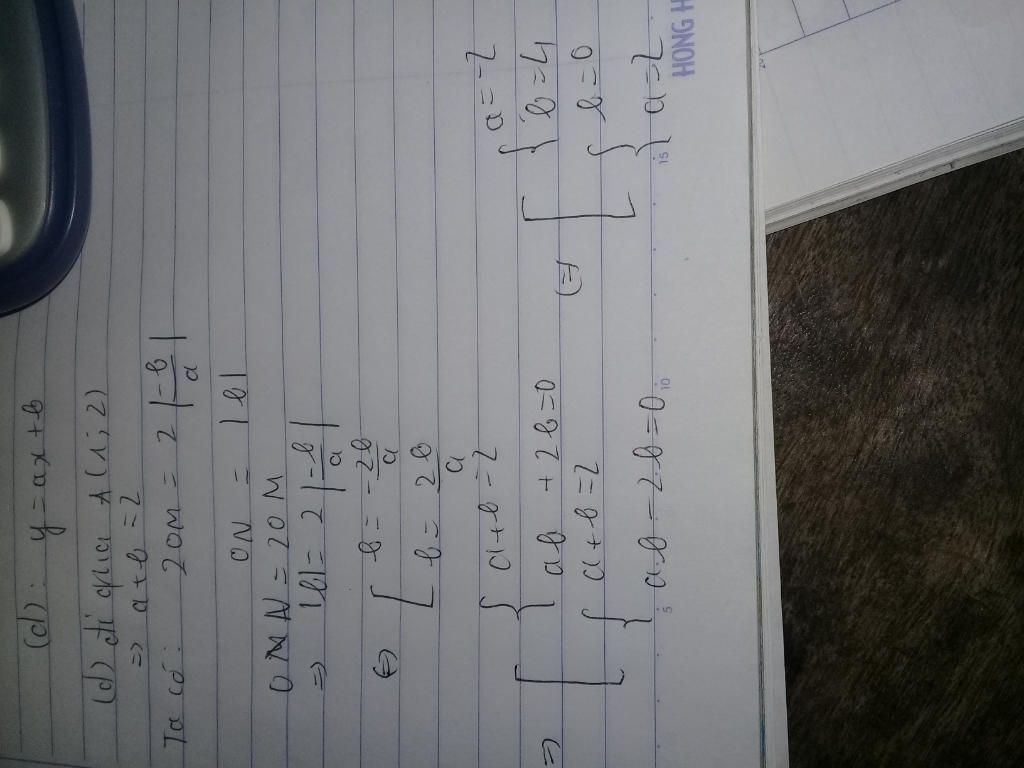 (d): y = ax + b
(d) đi qua A(1; 2)
=> a + b = 2
Ta có: 2OM = 2 |-b/a|
ON = |b|
ON = 2OM
=> |b| = 2 |-b/a|
<=> [ b = -2b/a
b = 2b/a
=> [ { a + b = 2
ab + 2b = 0
{ a + b = 2
a.b - 2b = 0
<=> [ { a = -2
b = 4
{ b = 0
a = 2
5 10 15
HONG H